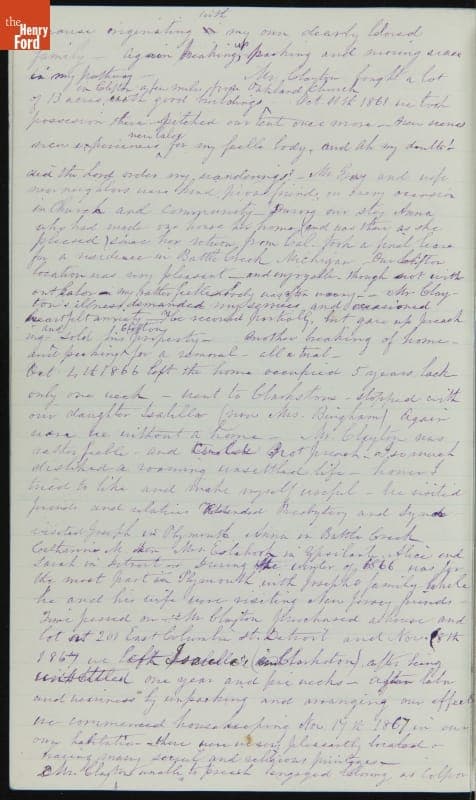 the
Henry
Ford
with
course originating my own dearly loved
family — Again breaking up packing and moving scenes
in my pathway — Mr. Clayton bought a lot
in Clifton a few miles from Oakland Church
of 13 acres with good buildings Oct 11th 1861 we took
possession there pitched our tent once more — New scenes
new experiences new labor for my feeble body, and Ah my doubts!
did the Lord order my wanderings? — Mr Eay and wife
near neighbors were kind, pious friends, on every occasion
in Church and community — During our stay Anna
who had made our house her home (and was there as she
pleased) since her return from took a final leave
for a residence in Battle Creek Michigan — Our Clifton
location was very pleasant — and enjoyable though not with
out labor — my rather feeble body was often weary — Mr Clay
ton's illness demanded my services and occasioned
much anxiety — He recovered partially, but gave up preach
ing — and sold his Clifton property — Another breaking of home —
and packing for a removal — all a trial —
Oct 4th 1866 left the home occupied 5 years lack
only one week — went to Clarkston — stopped with
our daughter Isabella (now Mrs. Bingham) Again
were we without a home — Mr Clayton was
rather feeble — and could not preach also much
disliked a roaming unsettled life — however
tried to like and make myself useful — he visited
friends and relatives Attended Presbytery and Synod
visited Joseph in Plymouth Anna in Battle Creek
Catharine M Mrs in Ypsilanti, Alice and
Sarah in Detroit — During the winter of 1866 was for
the most part in Plymouth with Joseph's family while
he and his wife were visiting New Jersey friends —
Time passed on — Mr Clayton purchased a house and
lot at 201 East Columbia St. Detroit and Nov 8th
1867 we left Isabella's (in Clarkston) after being
unsettled one year and five weeks — After labor
and weariness by unpacking and arranging our effects
we commenced housekeeping Nov. 19th 1867 in our
own habitation — there were we very pleasantly located —
having many social and religious privileges —
Mr. Clayton unable to preach engaged as Colpor